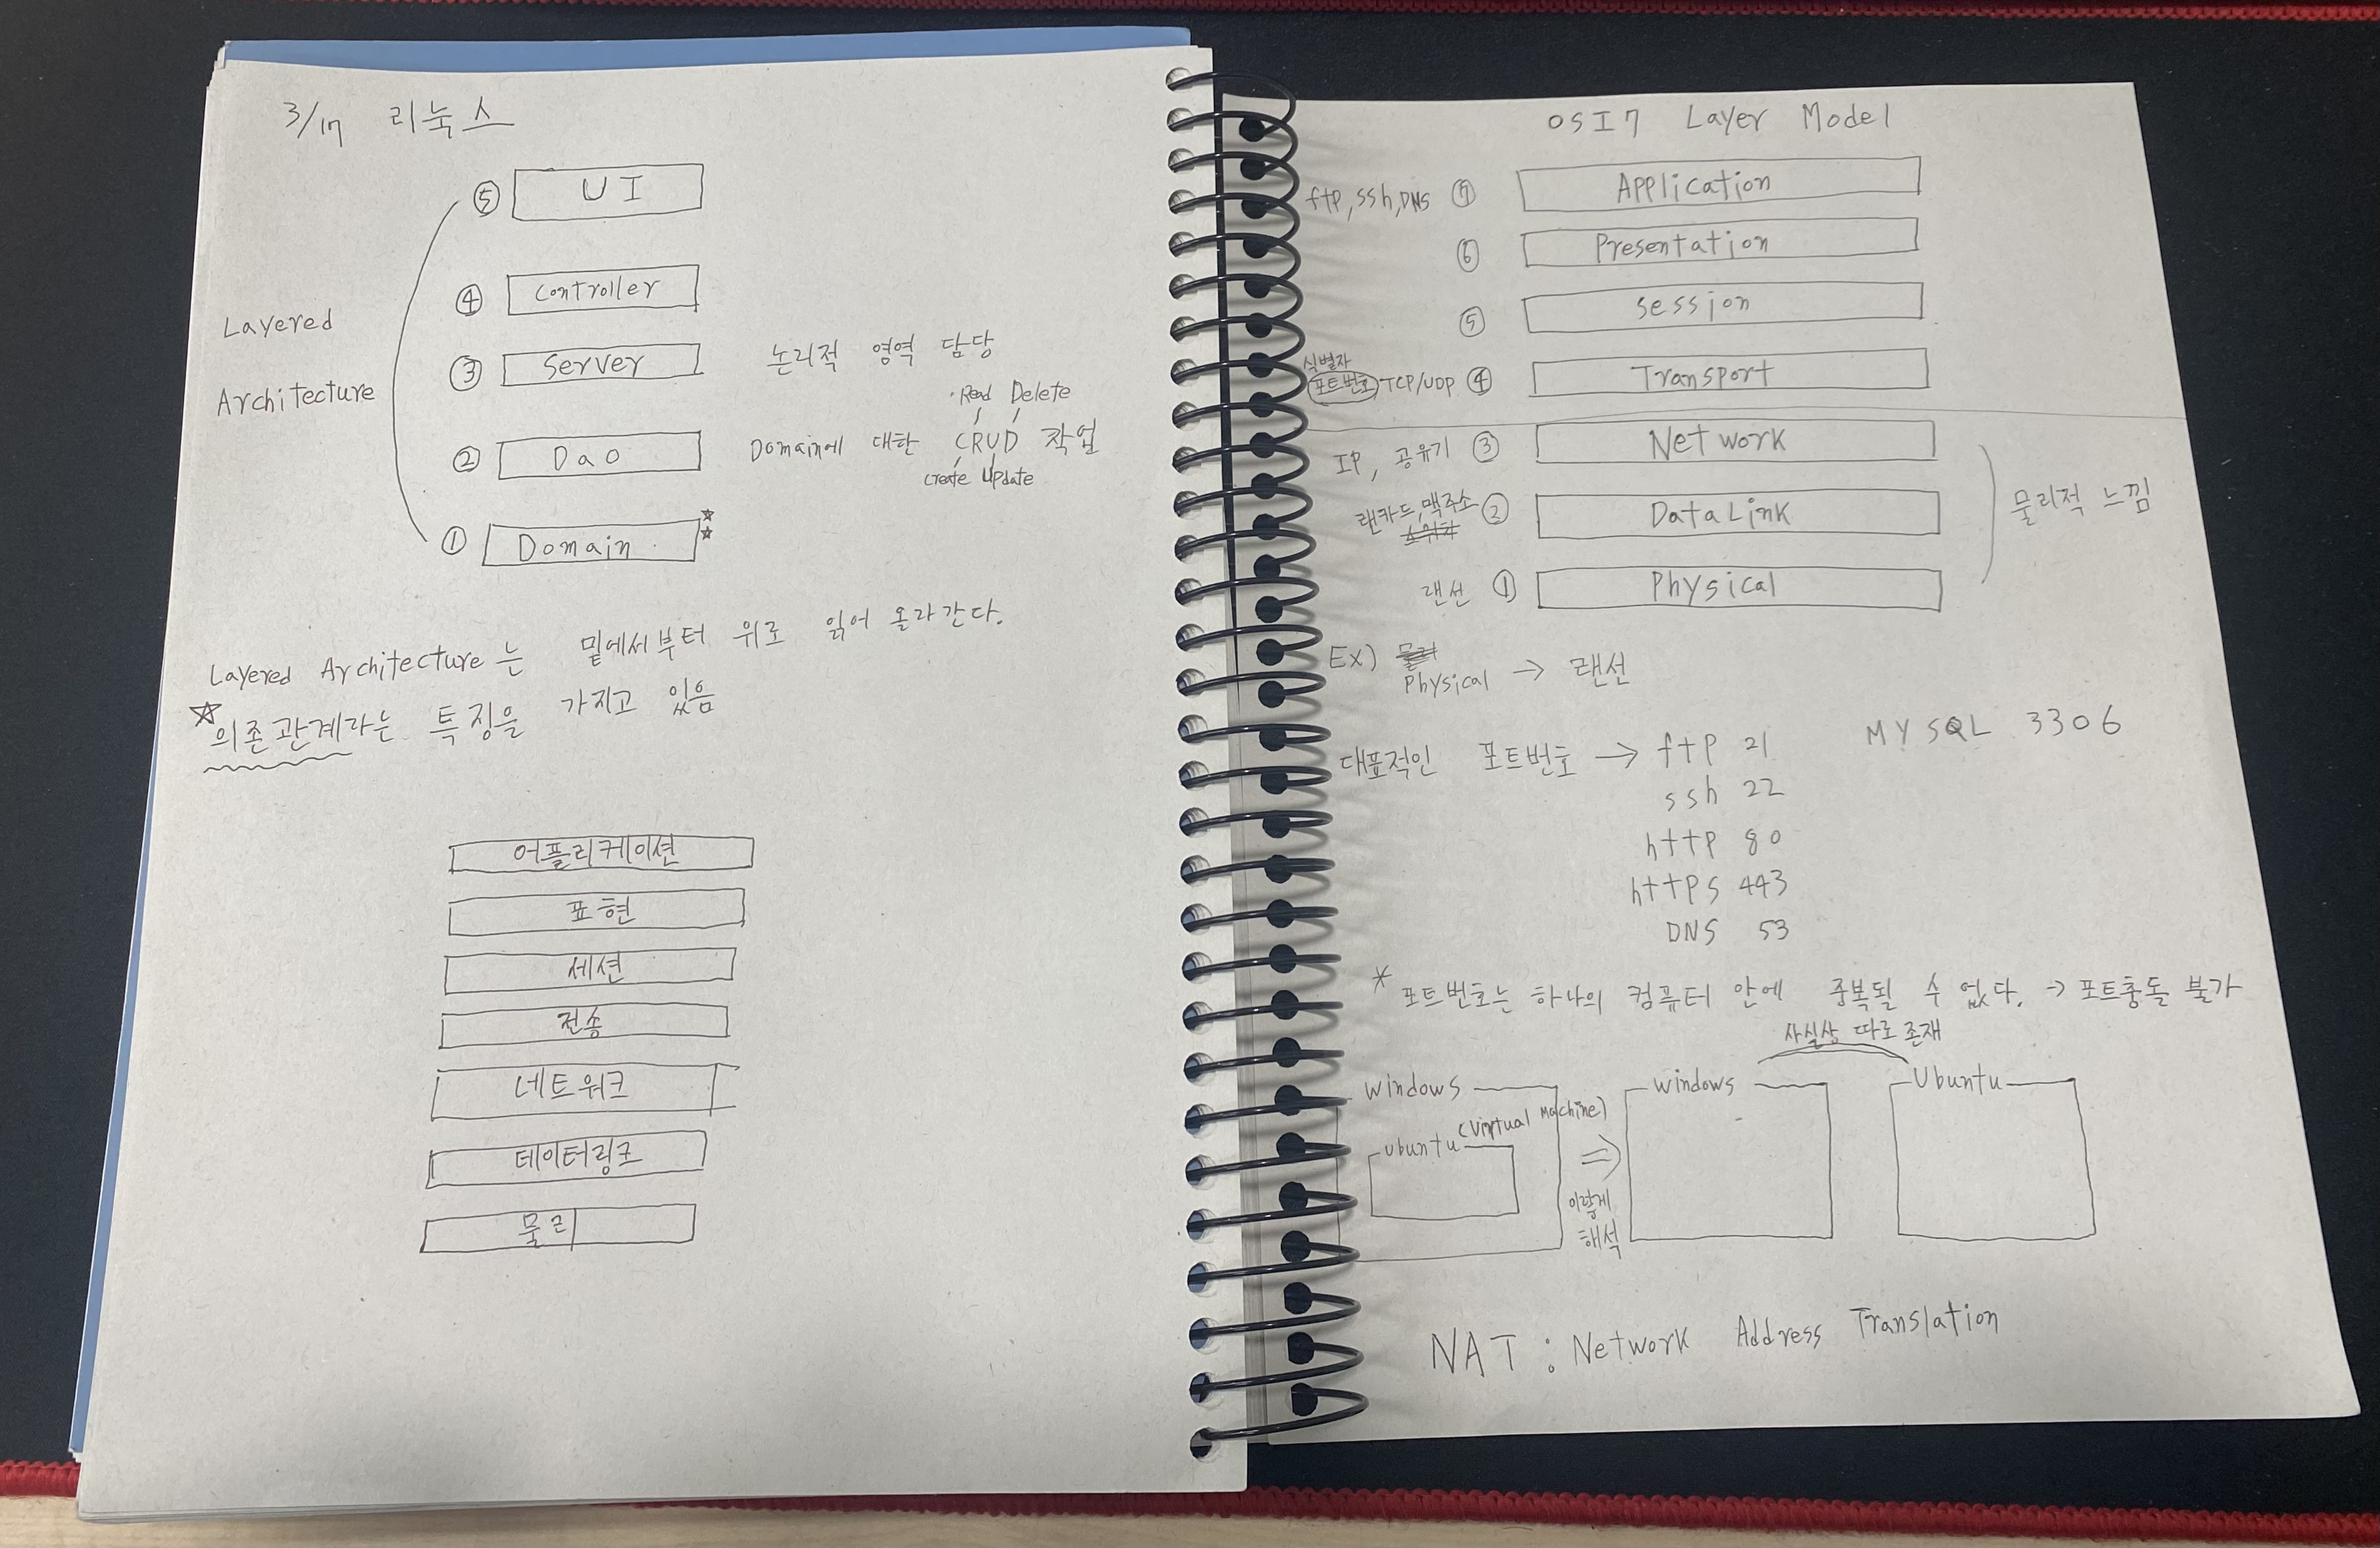 3/17 리눅스
⑤ UI
④ controller
Layered
③ server 논리적 영역 담당
Architecture
Read Delete
② Dao Domain에 대한 CRUD 작업
create update
① Domain
Layered Architecture는 밑에서부터 위로 읽어 올라간다.
의존관계라는 특징을 가지고 있음
어플리케이션
표현
세션
전송
네트워크
데이터링크
물리
OSI7 Layer Model
ftp, ssh, DNS ⑦ Application
⑥ Presentation
⑤ session
식별자
포트번호 TCP/UDP ④ Transport
IP, 공유기 ③ Network
랜카드, 맥주소 ② DataLink
스위치
물리적 느낌
랜선 ① Physical
Ex) Physical → 랜선
대표적인 포트번호 → ftp 21 MYSQL 3306
ssh 22
http 80
https 443
DNS 53
* 포트번호는 하나의 컴퓨터 안에 중복될 수 없다. → 포트충돌 불가
사실상 따로 존재
windows
(Virtual Machine)
ubuntu
⇒
이렇게
해석
windows
Ubuntu
NAT : Network Address Translation